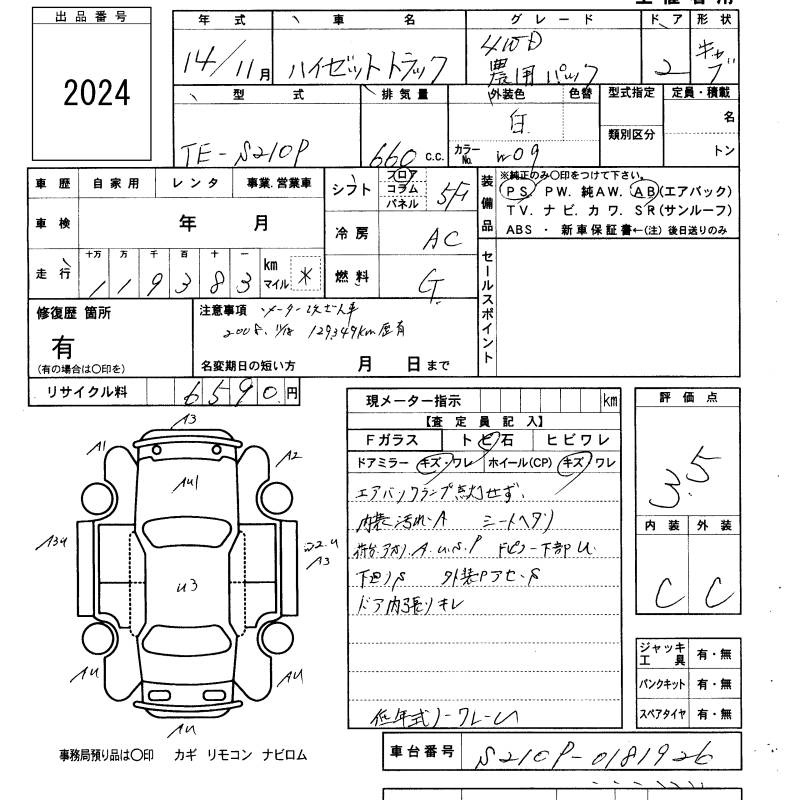 出品番号
2024
年式 車名 グレード ドア 形状
14/11月 ハイゼットトラック 4WD 農用パック 2 キャブ
型式 排気量 外装色 色替 型式指定 定員・積載
TE-S210P 660 c.c. 白 カラーNo. W09 類別区分 名
トン
車歴 自家用 レンタ 事業.営業車
車検 年 月
走行 十万 万 千 百 十 一 km マイル
119383 *
シフト フロア コラム パネル 5F
冷房 AC
燃料 G
装備品 ※純正のみ〇印をつけて下さい。
PS PW. 純AW. AB(エアバック)
TV. ナビ. カワ. SR(サンルーフ)
ABS ・ 新車保証書←(注) 後日送りのみ
セールスポイント
修復歴 箇所
有
(有の場合は〇印を)
注意事項 メーター改ざん車
2008. 11/18 129,349km歴有
名変期日の短い方 月 日まで
リサイクル料 6590円
現メーター指示 km
【査定員記入】
Fガラス トビ石 ヒビワレ
ドアミラー キズ・ワレ ホイール(CP) キズ/ワレ
エアバックランプ点灯せず.
内装汚れ.A シートヘタリ
荷台.アオリ.A.U.S.P Fピラー下部U.
下回りS 外装Pアセ.S
ドア内張りキレ
低年式ノークレーム
評価点
3.5
内装 外装
C C
A3
A1 A2
AU1
A3U
U3
A3
AU AU
AU
ジャッキ工具 有・無
パンクキット 有・無
スペアタイヤ 有・無
事務局預り品は〇印 カギ リモコン ナビロム
車台番号 S210P-0181926